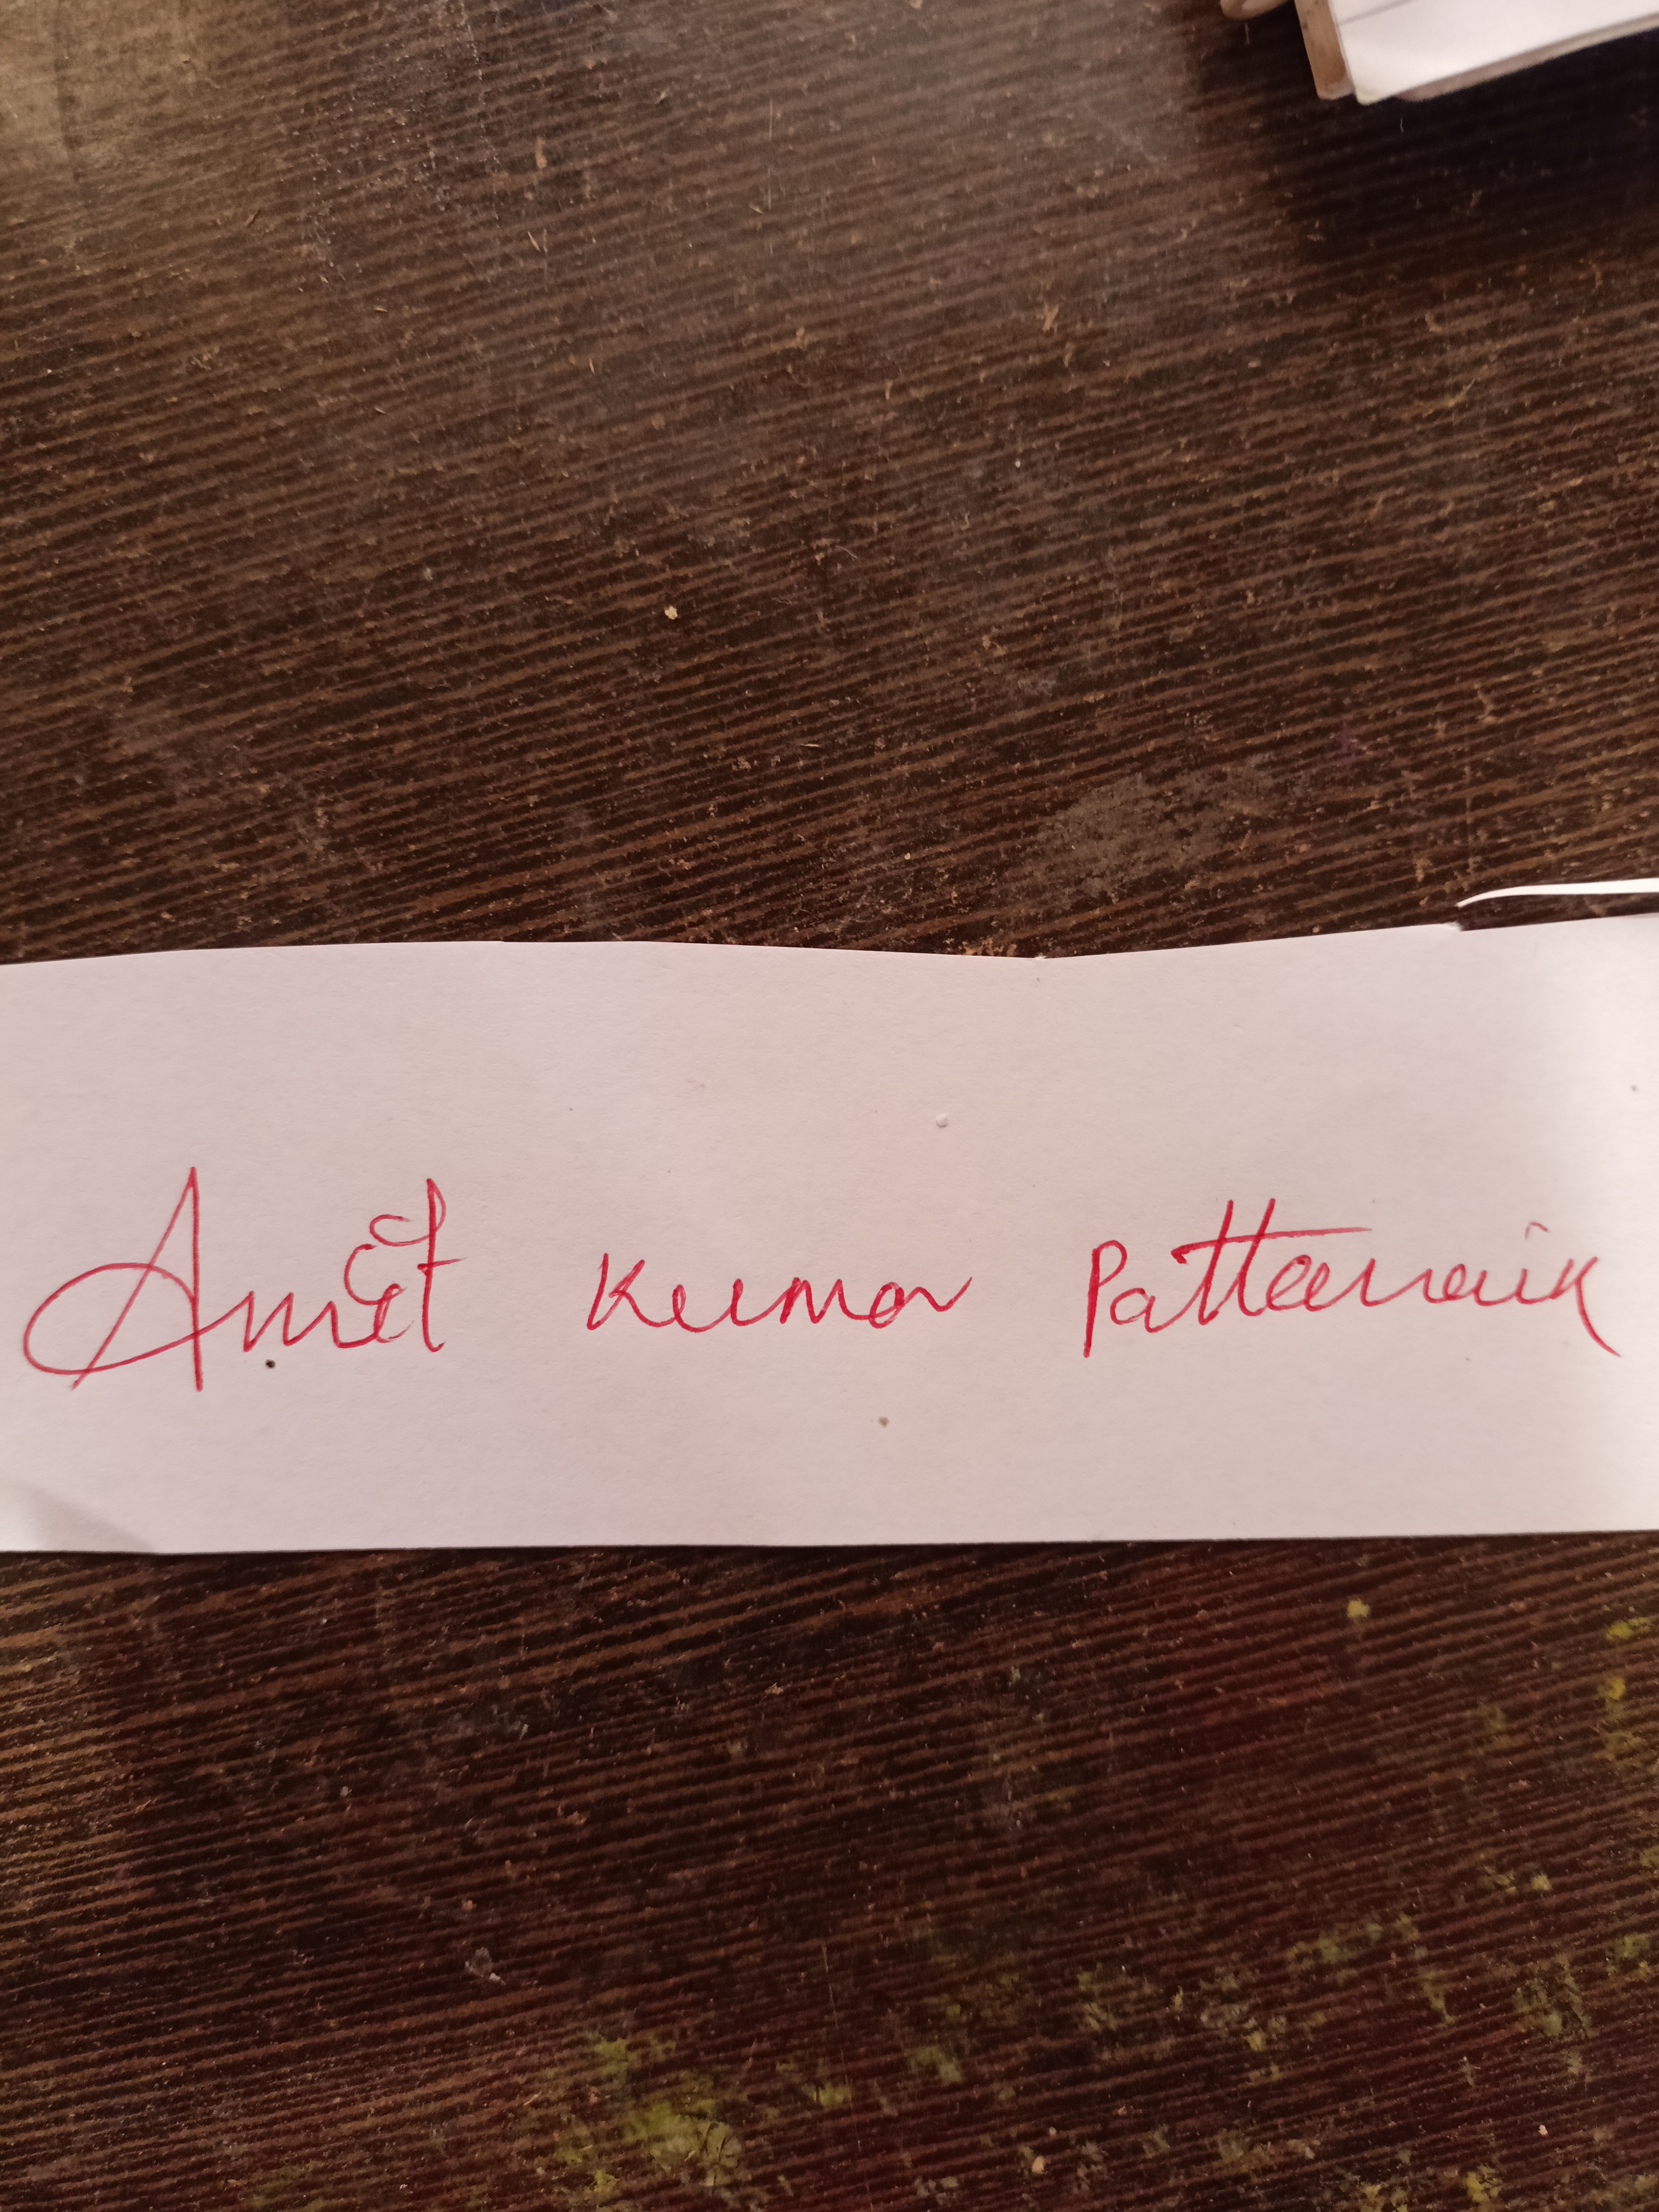 Amit Kumar Pattanaik